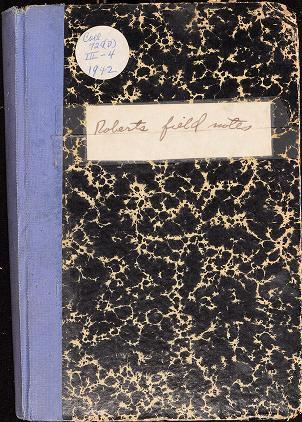 Coll.
729(D)
III-4
1942
Roberts field notes